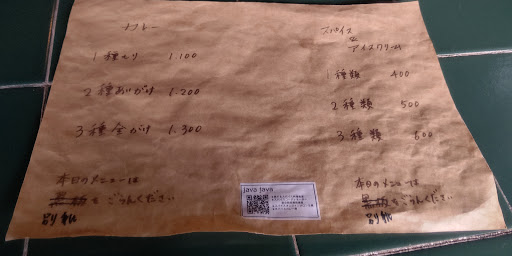 カレー
1種もり 1.100
2種あいがけ 1.200
3種全がけ 1.300
本日のメニューは
黒板をごらんください
別紙
スパイス
&
アイスクリーム
1種類 400
2種類 500
3種類 600
本日のメニューは
黒板をごらんください
別紙
java java